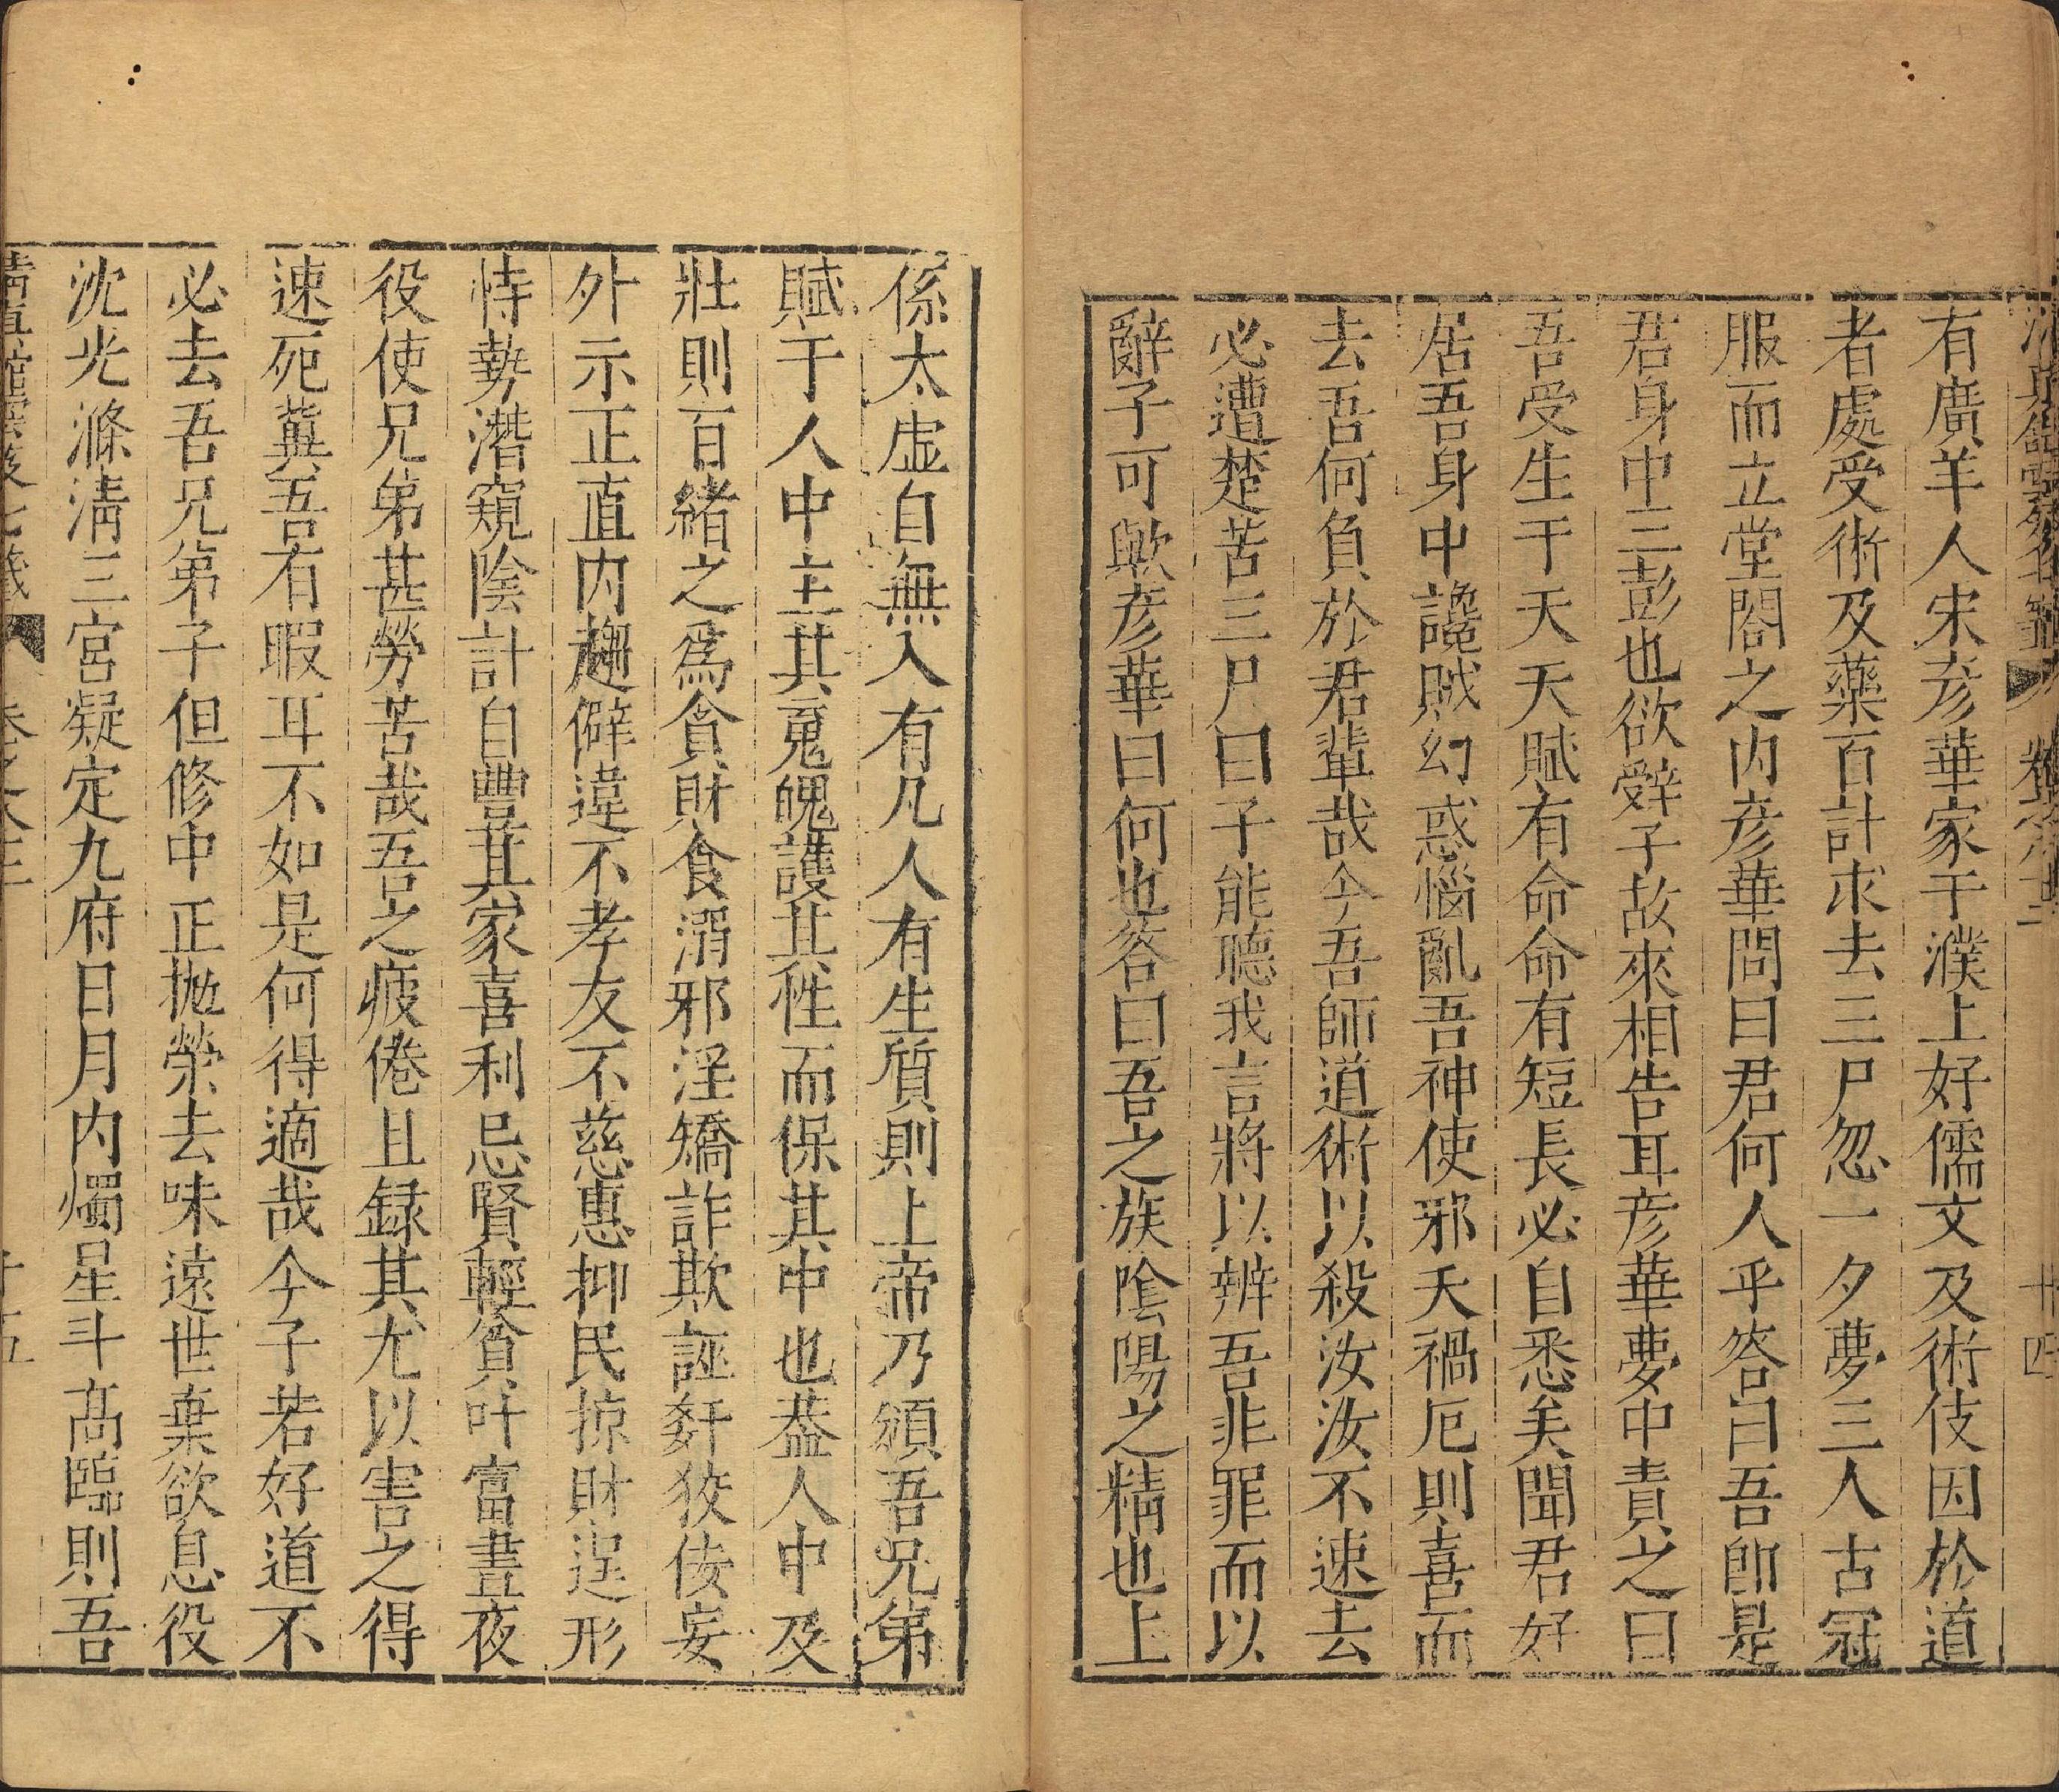 有廣羊人宋彦華家于濮上好儒文及術伎因於道
者處受術及藥百計求去三尸忽一夕夢三人古冠
服而立堂閤之内彦華問曰君何人乎答曰吾卽是
君身中三彭也欲辭子故來相告耳彦華夢中責之曰
吾受生于天天賦有命命有短長必自悉矣聞君好
居吾身中讒賊幻惑惱亂吾神使邪夭禍厄則喜而
去吾何負於君輩哉今吾師道術以殺汝汝不速去
必遭楚苦三尸曰子能聽我言將以辨吾非罪而以
辭子可歟彦華曰何也答曰吾之族陰陽之精也上
係太虛自無入有凡人有生質則上帝乃頒吾兄弟
賦于人中主其䰟魄護其性而保其中也葢人中及
壯則百緒之爲貪財食溺邪淫矯詐欺誣姧狡佞妄
外示正直内趣僻違不孝友不慈惠抑民掠財逞形
恃勢潛窺陰計自豐其家喜利忌賢輕貧叶富晝夜
役使兄弟甚勞苦哉吾之疲倦且録其尤以害之得
速死冀吾有暇耳不如是何得適哉今子若好道不
必去吾兄弟子但修中正拋榮去味遠世棄欲息役
沈光滌淸三宮凝定九府日月内燭星斗高臨則吾